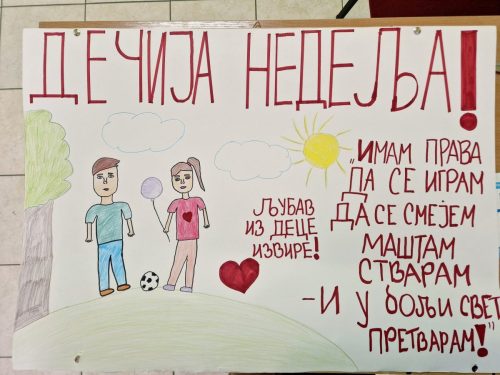 ДЕЧИЈА НЕДЕЉА!
ЉУБАВ
ИЗ ДЕЦЕ
ИЗВИРЕ!
„ИМАМ ПРАВА
ДА СЕ ИГРАМ
ДА СЕ СМЕЈЕМ
МАШТАМ
СТВАРАМ
-И У БОЉИ СВЕТ
ПРЕТВАРАМ!"